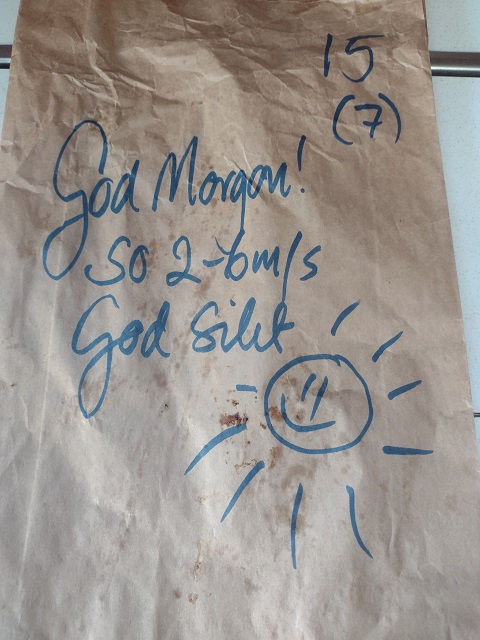 15
(7)
God Morgon!
SO 2-6m/s
God Sikt